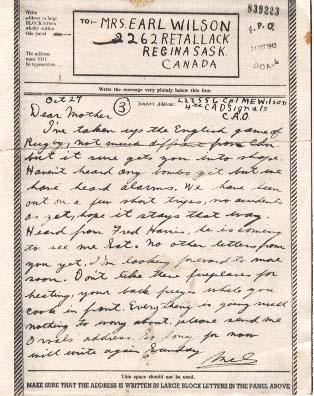 Write the address in large BLOCK letters wholly within this panel
The address must NOT be typewritten.
TO:- MRS. EARL WILSON
2262 RETALLACK
REGINA SASK.
CANADA
839223
F.P.O.
Write the message very plainly below this line.
Oct 27
3
Sender's Address: L22556 Cpl ME Wilson
4th CAD Signals
C.A.O.
Dear Mother
I've taken up the English game of
Rugby, not much different from Cdn.
but it sure gets you into shape.
Haven't heard any bombs yet but we
have heard alarms. We have been
out on a few short trips, no accidents
as yet, hope it stays that way.
Heard from Fred Harris, he is coming
to see me Sat. No other letters from
you yet, I'm looking forward to more
soon. Don't like these fireplaces for
heating, your back freezes while you
cook in front. Everything is going well
nothing to worry about, please send me
Orvals address. So long for now
will write again Sunday
Mel
This space should not be used.
MAKE SURE THAT THE ADDRESS IS WRITTEN IN LARGE BLOCK LETTERS IN THE PANEL ABOVE